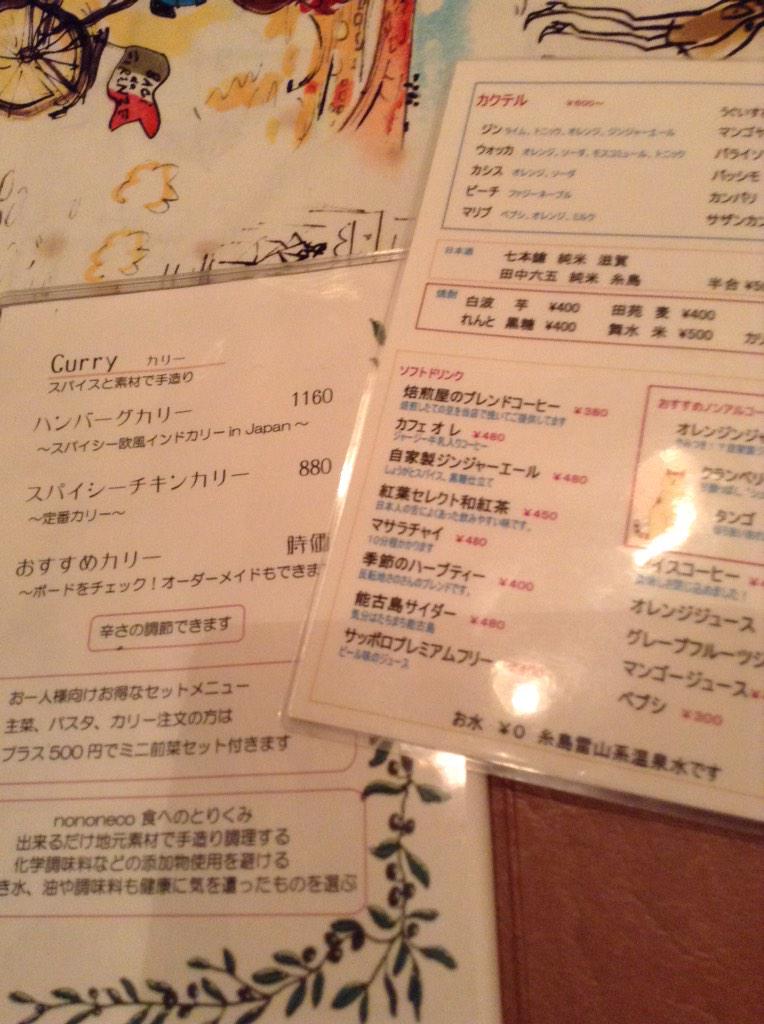 Curry カリー
スパイスと素材で手造り
ハンバーグカリー 1160
～スパイシー欧風インドカリー in Japan～
スパイシーチキンカリー 880
～定番カリー～
おすすめカリー 時価
～ボードをチェック！オーダーメイドもできま
辛さの調節できます
お一人様向けお得なセットメニュー
主菜、パスタ、カリー注文の方は
プラス500円でミニ前菜セット付きます
nononeco 食へのとりくみ
出来るだけ地元素材で手造り調理する
化学調味料などの添加物使用を避ける
き水、油や調味料も健康に気を遣ったものを選ぶ
カクテル ¥600～
ジン ライム、トニック、オレンジ、ジンジャーエール
ウォッカ オレンジ、ソーダ、モスコミュール、トニック
カシス オレンジ、ソーダ
ピーチ ファジーネーブル
マリブ ペプシ、オレンジ、ミルク
うぐいす
マンゴヤ
パライソ
パッシモ
カンパリ
サザンカン
日本酒 七本鎗 純米 滋賀
田中六五 純米 糸島 半合 ¥50
焼酎 白波 芋 ¥400 田苑 麦 ¥400
れんと 黒糖 ¥400 舞水 米 ¥500 カ
ソフトドリンク
焙煎屋のブレンドコーヒー ¥380
焙煎したての豆を当店で挽いてご提供してます
カフェオレ ¥480
ジャージー牛乳入りコーヒー
自家製ジンジャーエール ¥480
しょうがとスパイス、黒糖仕立て
紅葉セレクト和紅茶 ¥450
日本人の舌によくあった飲みやすい味です。
マサラチャイ ¥480
10分程かかります
季節のハーブティー ¥400
能古島サイダー ¥480
気分はたちまち能古島
サッポロプレミアムフリー
ビール味のジュース
おすすめノンアルコー
オレンジンジャ
クランベリ
タンゴ
イスコーヒー
オレンジジュース
グレープフルーツジ
マンゴージュース
ペプシ ¥300
お水 ¥0 糸島雷山系温泉水です